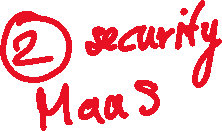 ② security
MaaS